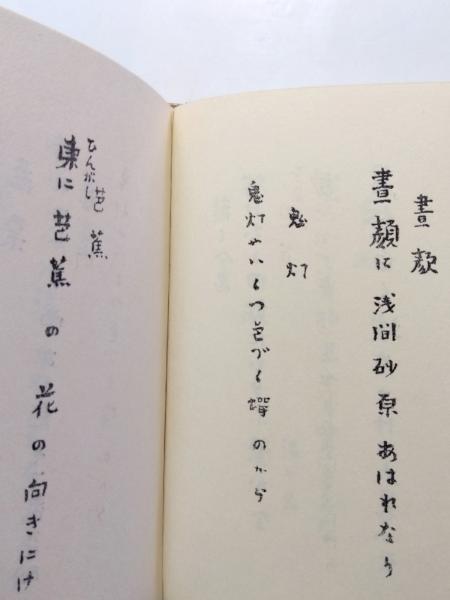 晝顔
晝顔に浅間砂原あはれなり
鬼灯
鬼灯やいくつ色づく蟬のから
芭蕉
ひんがし
東に芭蕉の花の向きにけ